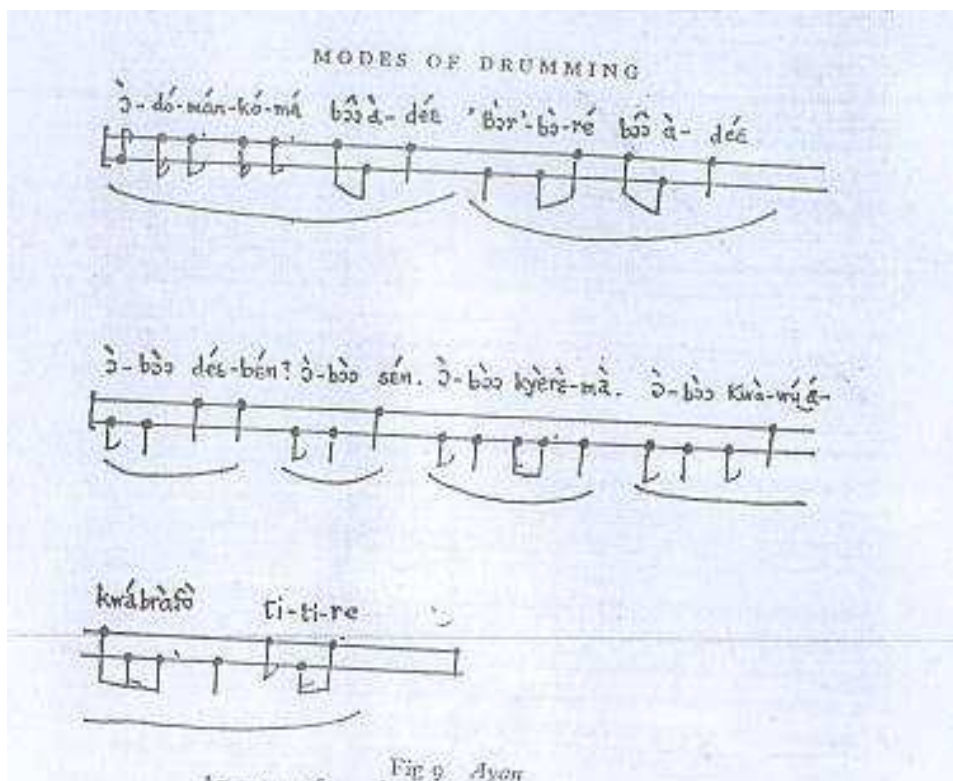 MODES OF DRUMMING
ɔ̀-dó-mán-kó-má bɔ́ɔ̀ à-déɛ 'Bɔ̀r'-bɔ̀-ré bɔ́ɔ̀ à-déɛ
ɔ̀-bɔ̀ɔ déɛ-bén? ɔ̀-bɔ̀ɔ sén. ɔ̀-bɔ̀ɔ kyèrè-mà. ɔ̀-bɔ̀ɔ
kwábràfò ti-ti-re
Fig 9. Ayan